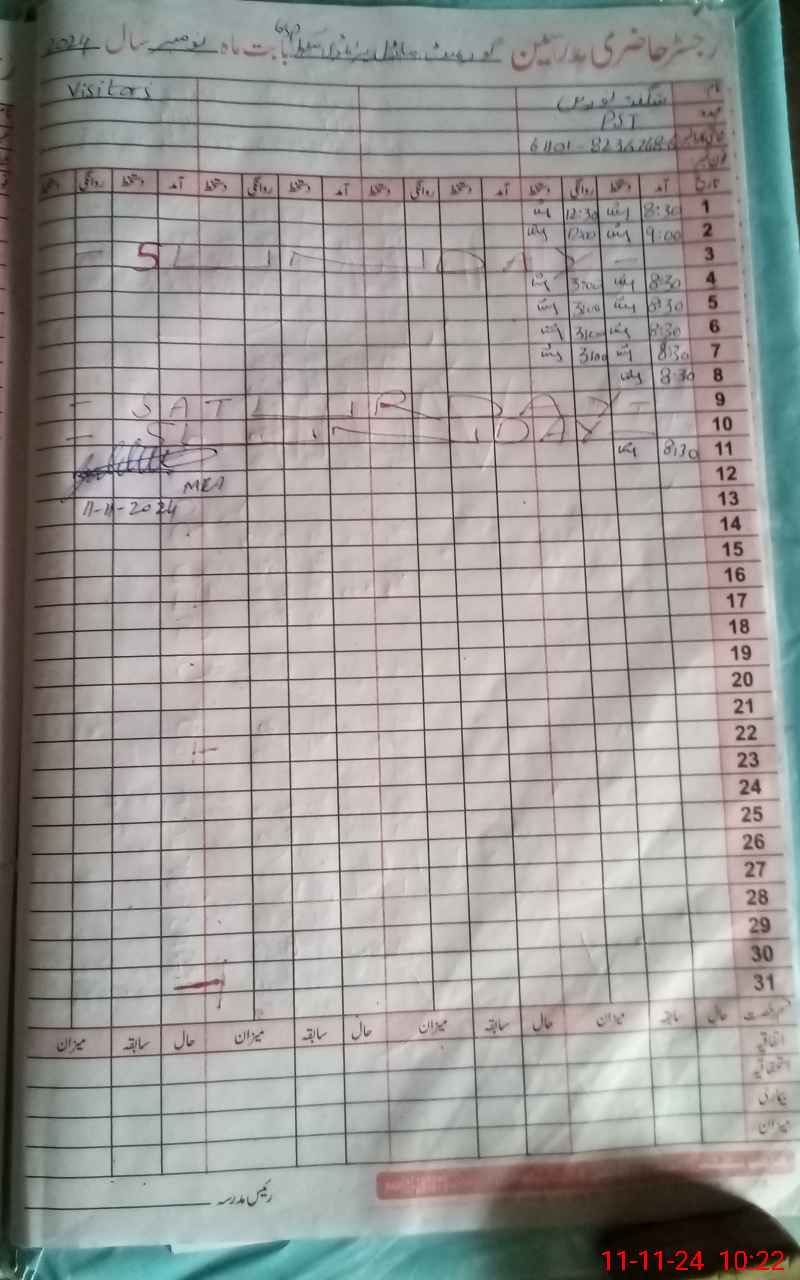 رجسٹر حاضری مدرسین گورنمنٹ بابت ماہ نومبر سال 2024
نام Visitors
عہدہ PST
تاریخ آمد دستخط روانگی دستخط آمد دستخط روانگی دستخط آمد دستخط روانگی دستخط آمد دستخط روانگی دستخط
1 8:30 12:30
2 9:00 12:00
3 - SUNDAY -
4 8:30 3:00
5 8:30 3:00
6 8:30 3:00
7 8:30 3:00
8 8:30
9 - SATURDAY -
10 - SUNDAY -
11 8:30
12 MEA
13 11-11-2024
14
15
16
17
18
19
20
21
22
23
24
25
26
27
28
29
30
31
قسم رخصت حال سابقہ میزان حال سابقہ میزان حال سابقہ میزان حال سابقہ میزان
اتفاقیہ
استحقاقیہ
بیماری
میزان
رئیس مدرسہ
11-11-24 10:22